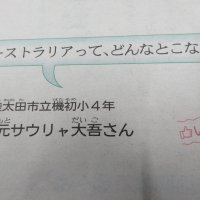 ーストラリアって、どんなとこな
太田市立機初小4年
元サウリャ大吾さん